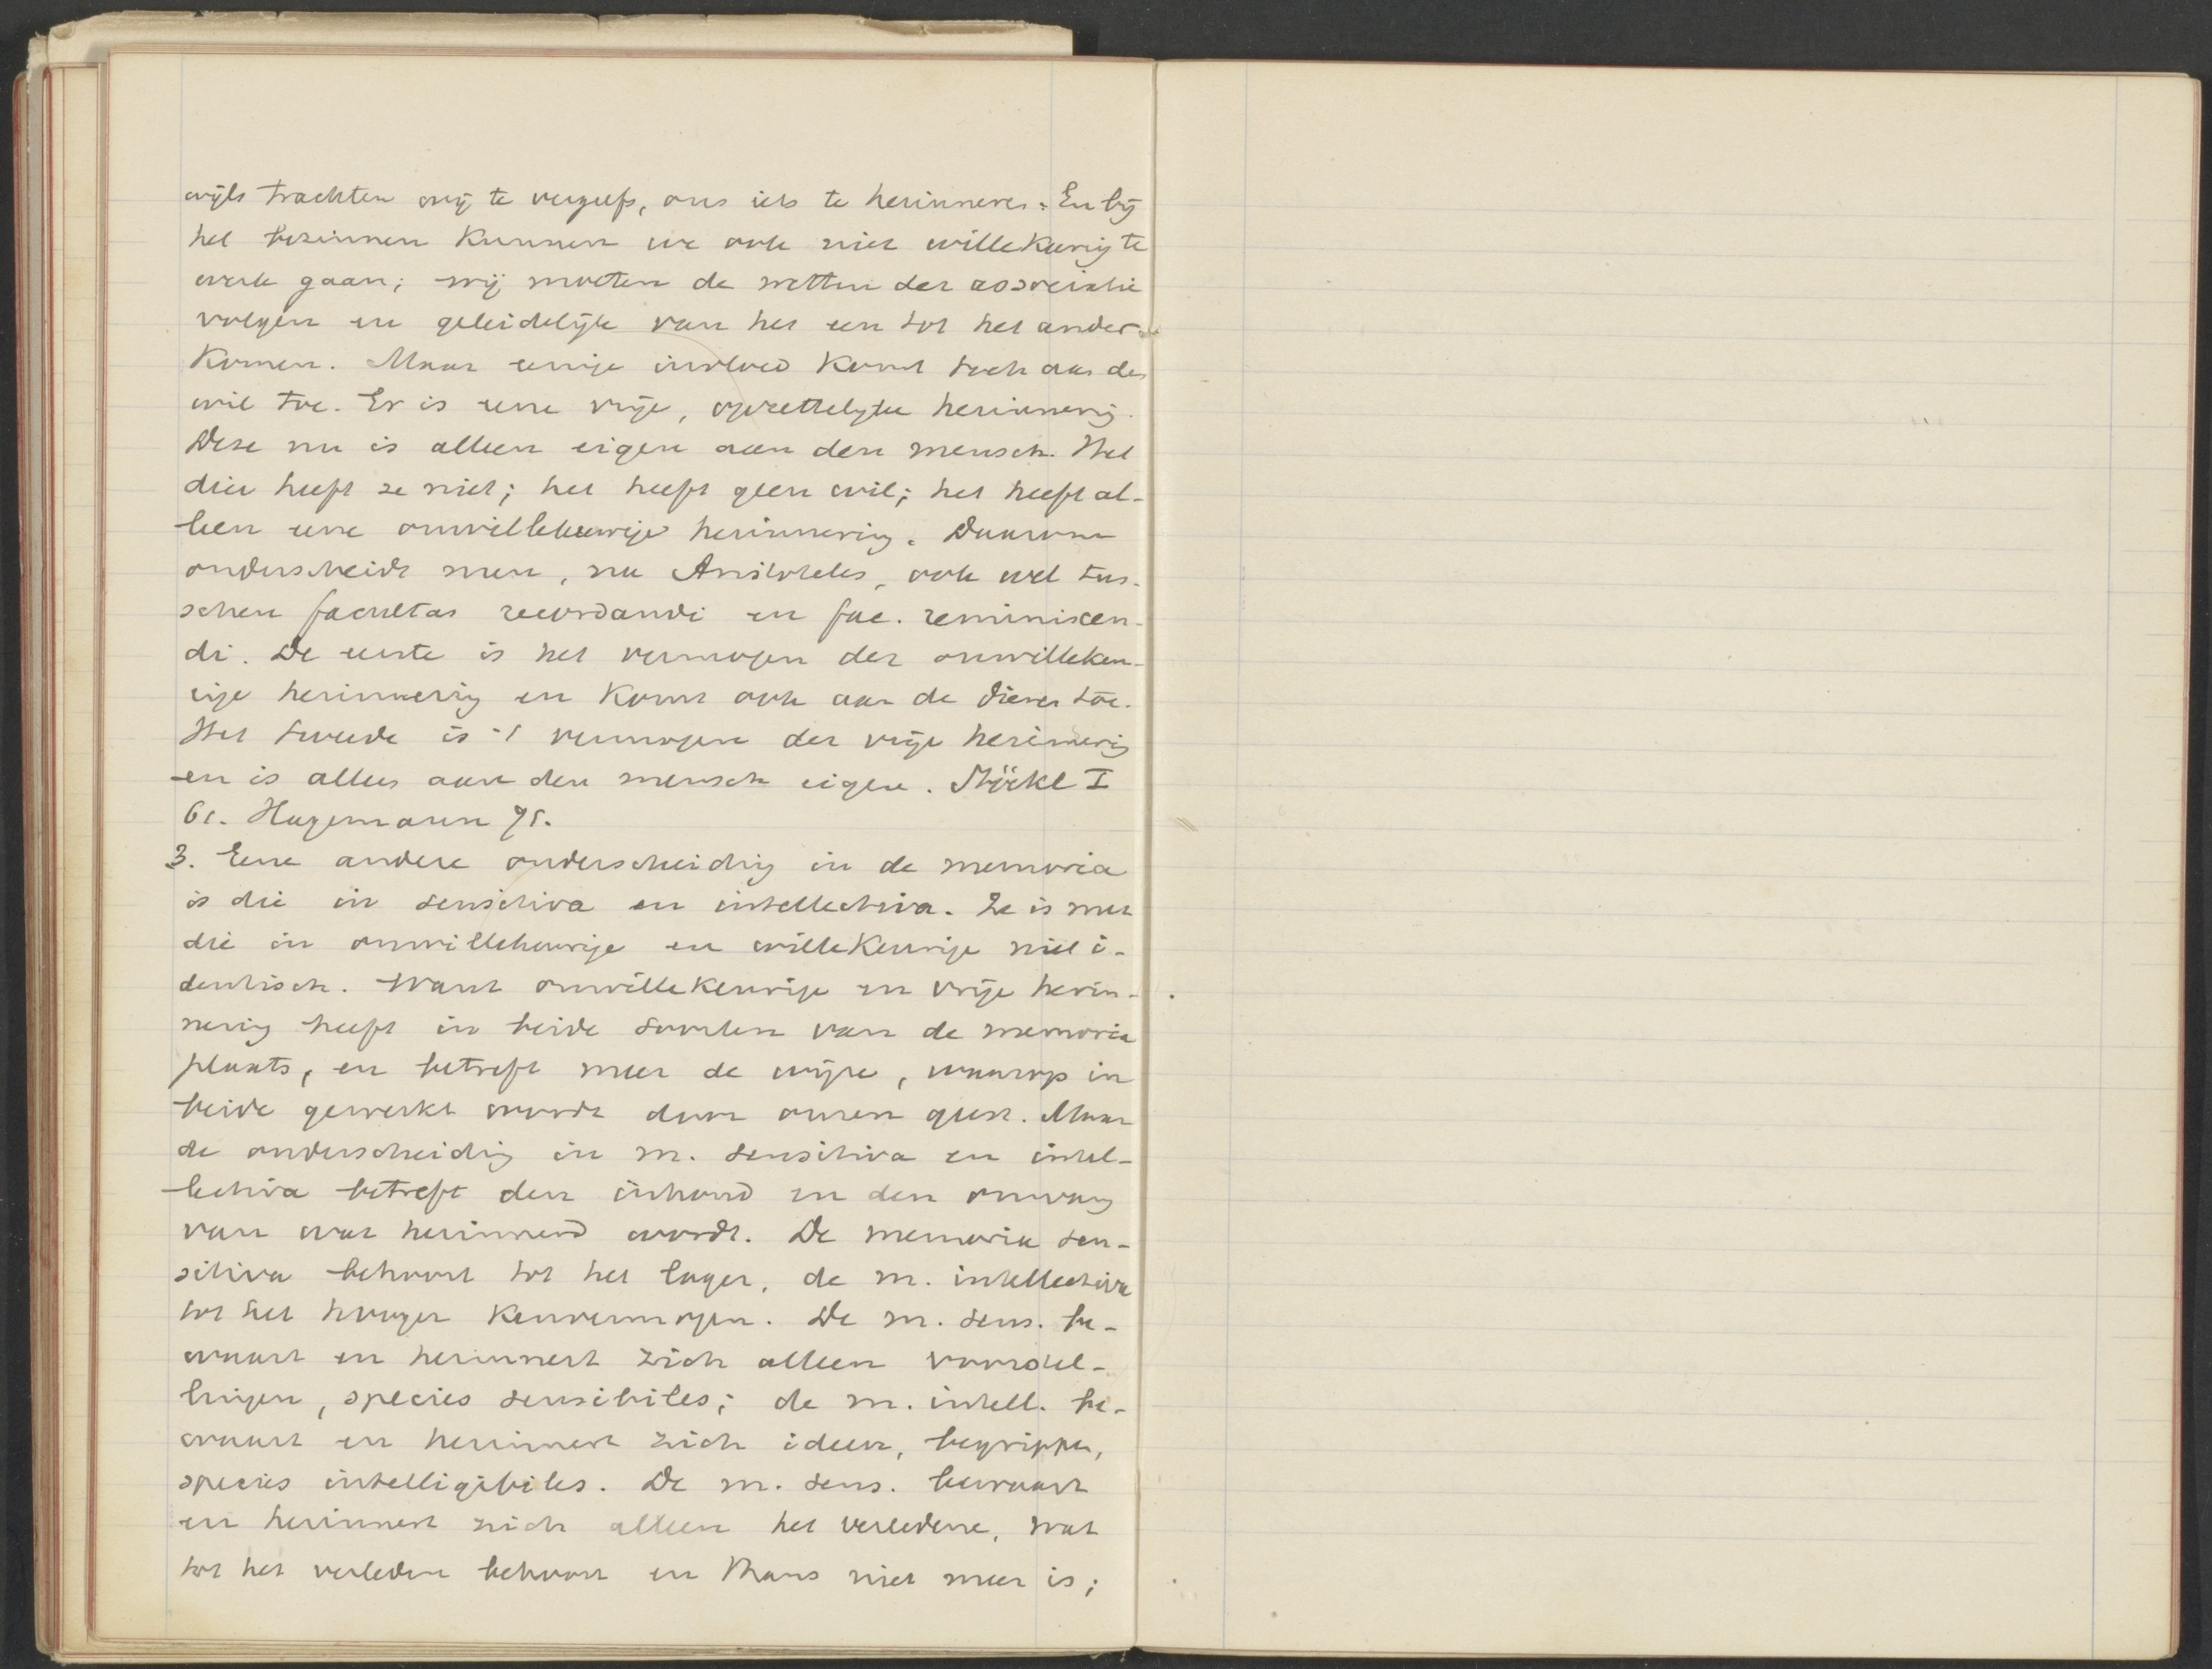 wijls trachten wij te vergeefs, ons iets te herinneren. En bij
het bezinnen kunnen we ook niet willekeurig te
werk gaan; wij moeten de wetten der associatie
volgen en geleidelijk van het een tot het ander
komen. Maar eenige invloed komt toch aan den
wil toe. Er is eene vrije, opzettelijke herinnering.
Deze nu is alleen eigen aan den mensch. Het
dier heeft ze niet; het heeft geen wil; het heeft al-
leen eene onwillekeurige herinnering. Daarom
onderscheidt men, na Aristoteles, ook wel tus-
schen facultas recordandi en fac. reminiscen-
di. De eerste is het vermogen der onwillekeu-
rige herinnering en komt ook aan de dieren toe.
Het tweede is 't vermogen der vrije herinnering
en is alleen aan den mensch eigen. Stöckl I
61. Hagemann 95.
3. Eene andere onderscheiding in de memoria
is die in sensitiva en intellectiva. Ze is met
die in onwillekeurige en willekeurige niet i-
dentisch. Want onwillekeurige en vrije herin-
nering heeft in beide soorten van de memoria
plaats, en betreft meer de wijze, waarop in
beide gewerkt wordt door onzen geest. Maar
de onderscheiding in m. sensitiva en intel-
lectiva betreft den inhoud en den omvang
van wat herinnerd wordt. De memoria sen-
sitiva behoort tot het lager, de m. intellectiva
tot het hooger kenvermogen. De m. sens. be-
waart en herinnert zich alleen voorstel-
lingen, species sensibiles; de m. intell. be-
waart en herinnert zich ideeen, begrippen,
species intelligibiles. De m. sens. bewaart
en herinnert zich alleen het verledene, wat
tot het verleden behoort en thans niet meer is;